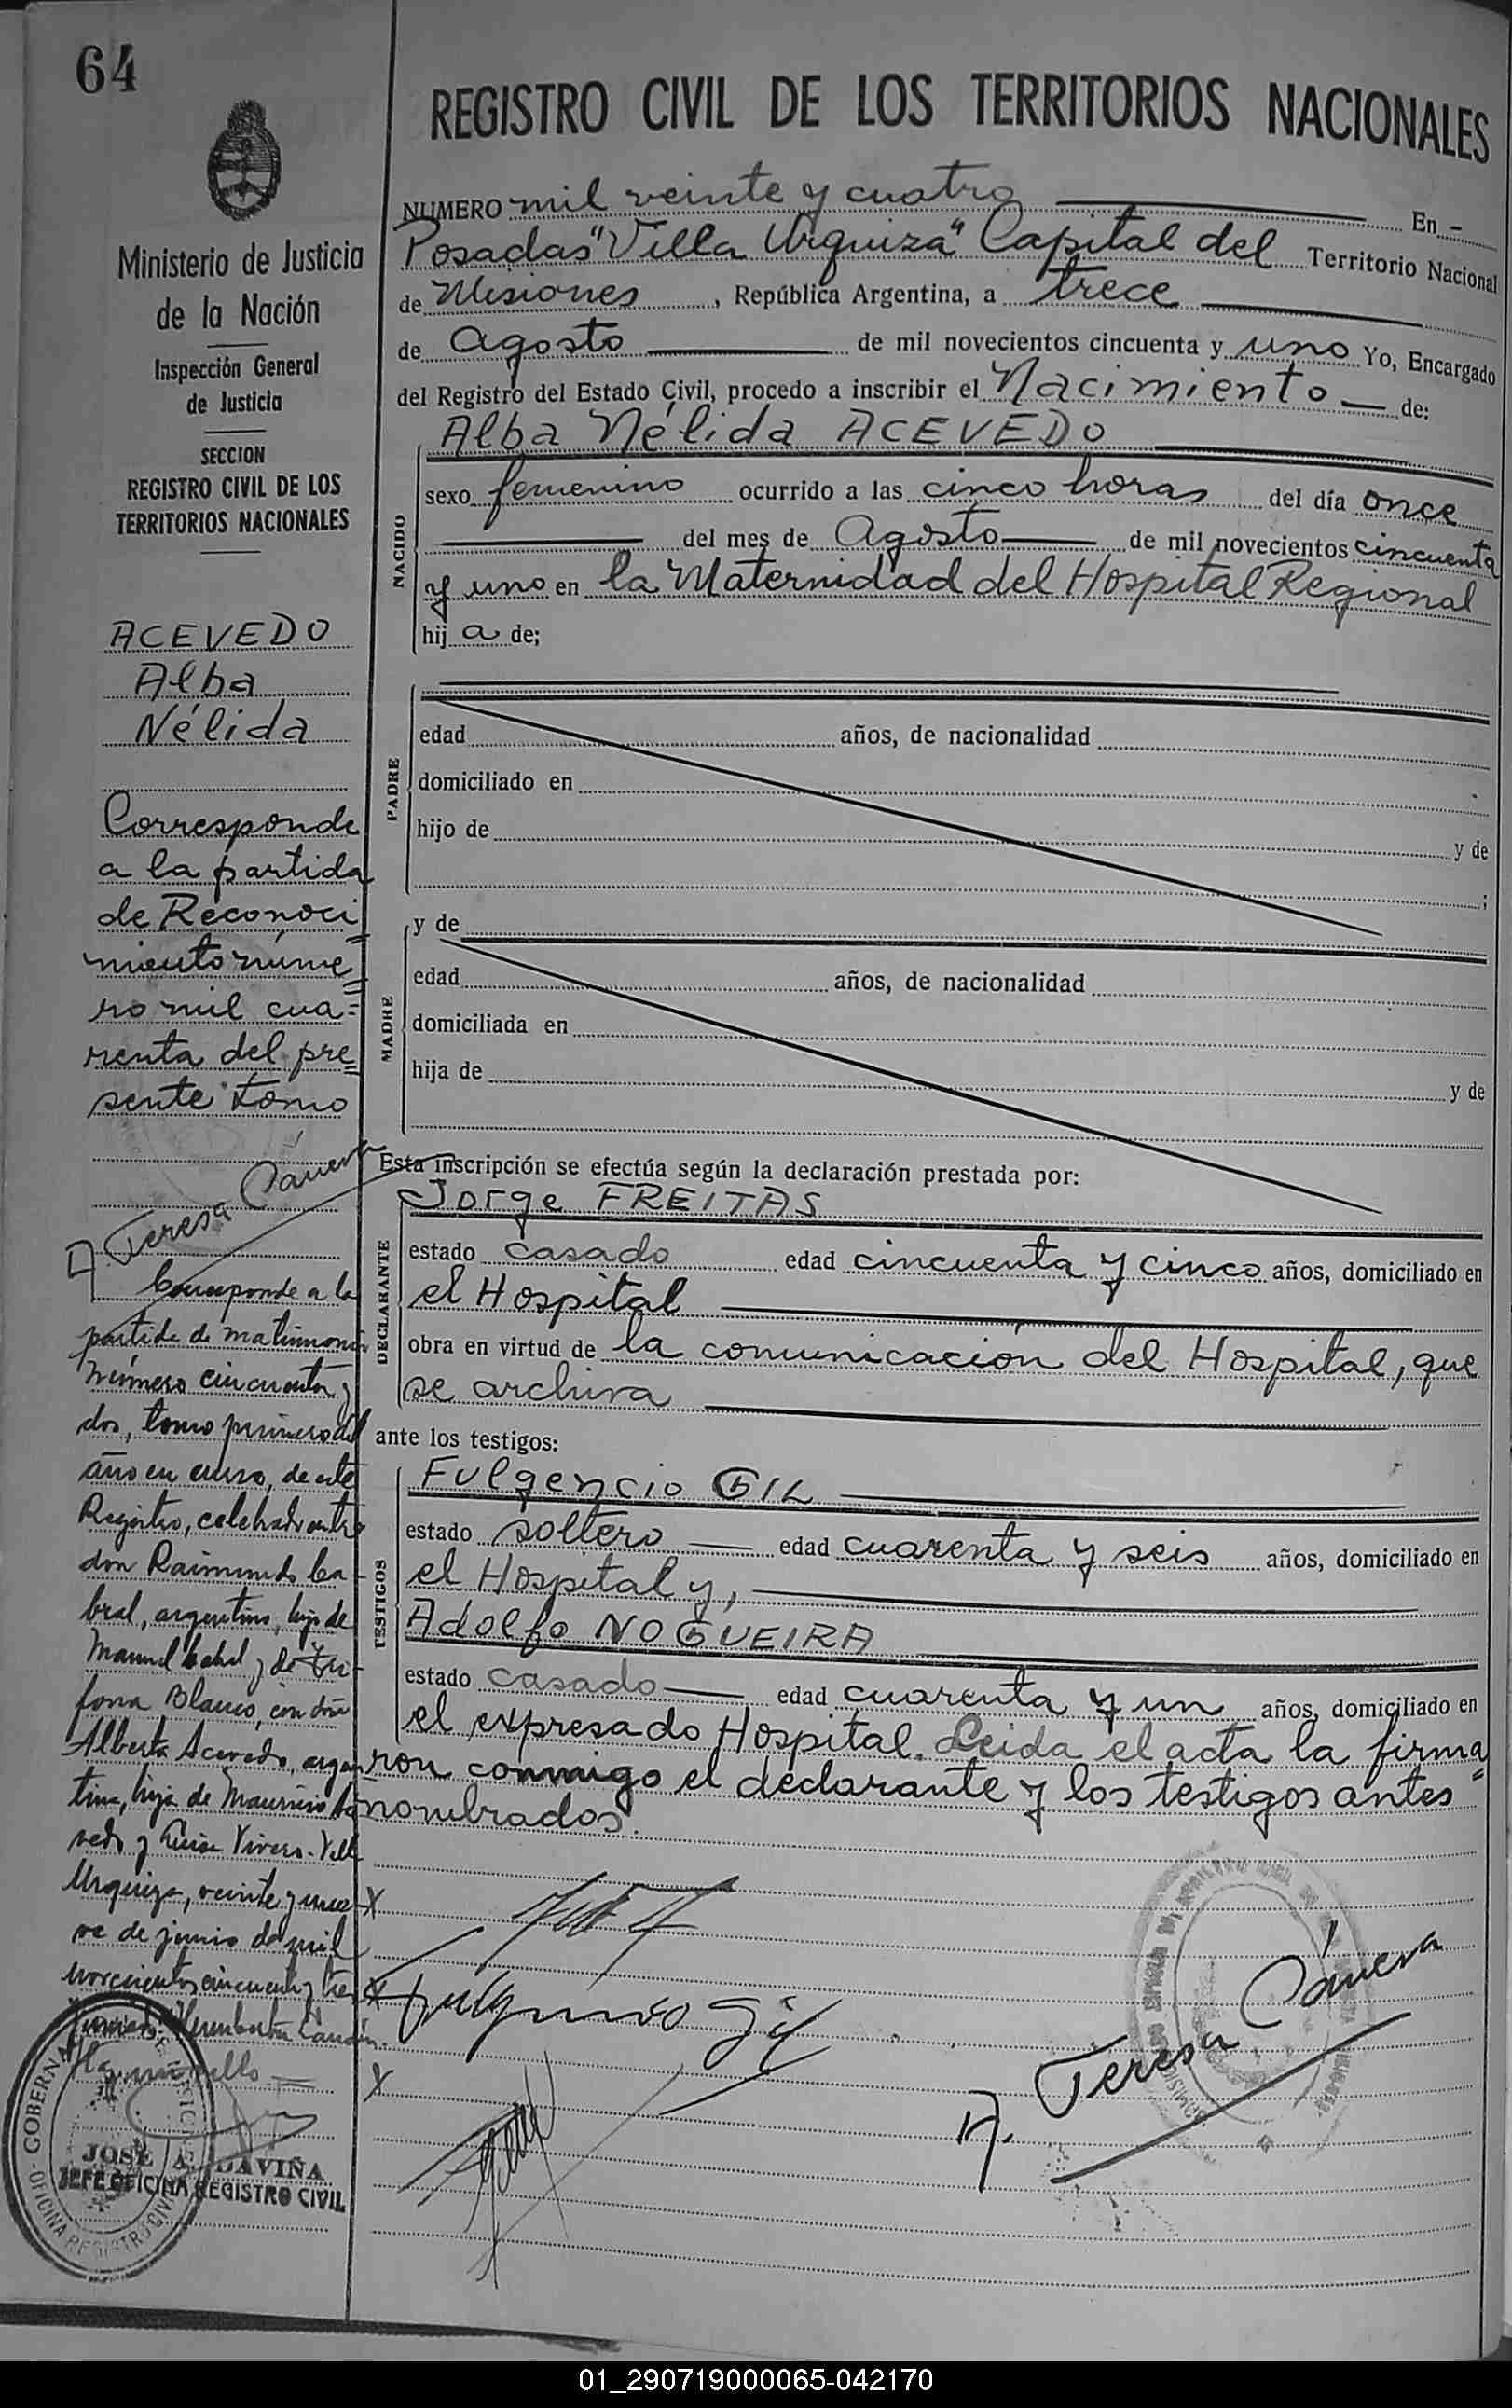 64
REGISTRO CIVIL DE LOS TERRITORIOS NACIONALES
Ministerio de Justicia
de la Nación
Inspección General
de Justicia
SECCION
REGISTRO CIVIL DE LOS
TERRITORIOS NACIONALES
ACEVEDO
Alba
Nélida
Corresponde
a la partida
de Reconoci
miento núme
ro mil cua=
renta del pre
sente tomo
A Teresa Cánera
Corresponde a la
partida de matrimonio
número cincuenta y
dos, tomo primero del
año en curso, de este
Registro, celebrado entre
don Raimundo Ca-
bral, argentino, hijo de
Manuel Cabral y de Tri-
fona Blanco, con doña
Alberta Acevedo, argen
tina, hija de Mauricio Ace
vedo y Luisa Vivero. Villa
Urquiza, veinte y nue
ve de junio de mil
novecientos cincuenta y tres
JOSE A. DAVIÑA
JEFE OFICINA REGISTRO CIVIL
NUMERO mil veinte y cuatro En -
Posadas "Villa Urquiza" Capital del Territorio Nacional
de Misiones, República Argentina, a trece
de Agosto de mil novecientos cincuenta y uno Yo, Encargado
del Registro del Estado Civil, procedo a inscribir el Nacimiento — de:
Alba Nélida ACEVEDO
NACIDO
sexo femenino ocurrido a las cinco horas del día once
del mes de Agosto de mil novecientos cincuenta
y uno en la Maternidad del Hospital Regional
hij a de;
PADRE
edad años, de nacionalidad
domiciliado en
hijo de y de
;
MADRE
y de
edad años, de nacionalidad
domiciliada en
hija de y de
Esta inscripción se efectúa según la declaración prestada por:
Jorge FREITAS
DECLARANTE
estado casado edad cincuenta y cinco años, domiciliado en
el Hospital
obra en virtud de la comunicación del Hospital, que
se archiva
ante los testigos:
Fulgencio GIL
TESTIGOS
estado soltero — edad cuarenta y seis años, domiciliado en
el Hospital y,
Adolfo NOGUEIRA
estado casado — edad cuarenta y un años, domiciliado en
el expresado Hospital. Leida el acta la firma
ron conmigo el declarante y los testigos antes"
nombrados.
Fulgencio Gil
A. Teresa Cánera
01_290719000065-042170